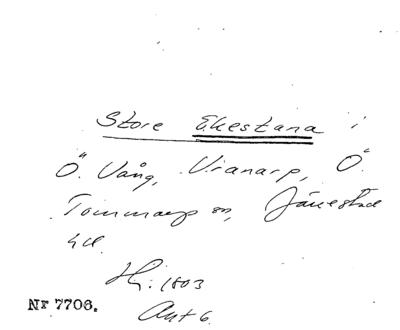 Store Ekestana i
Ö. Vång, Vranarp, Ö.
Tommarp sn, Järrestad
hd.
Hj. 1803
Akt 6.
Nr 7706.